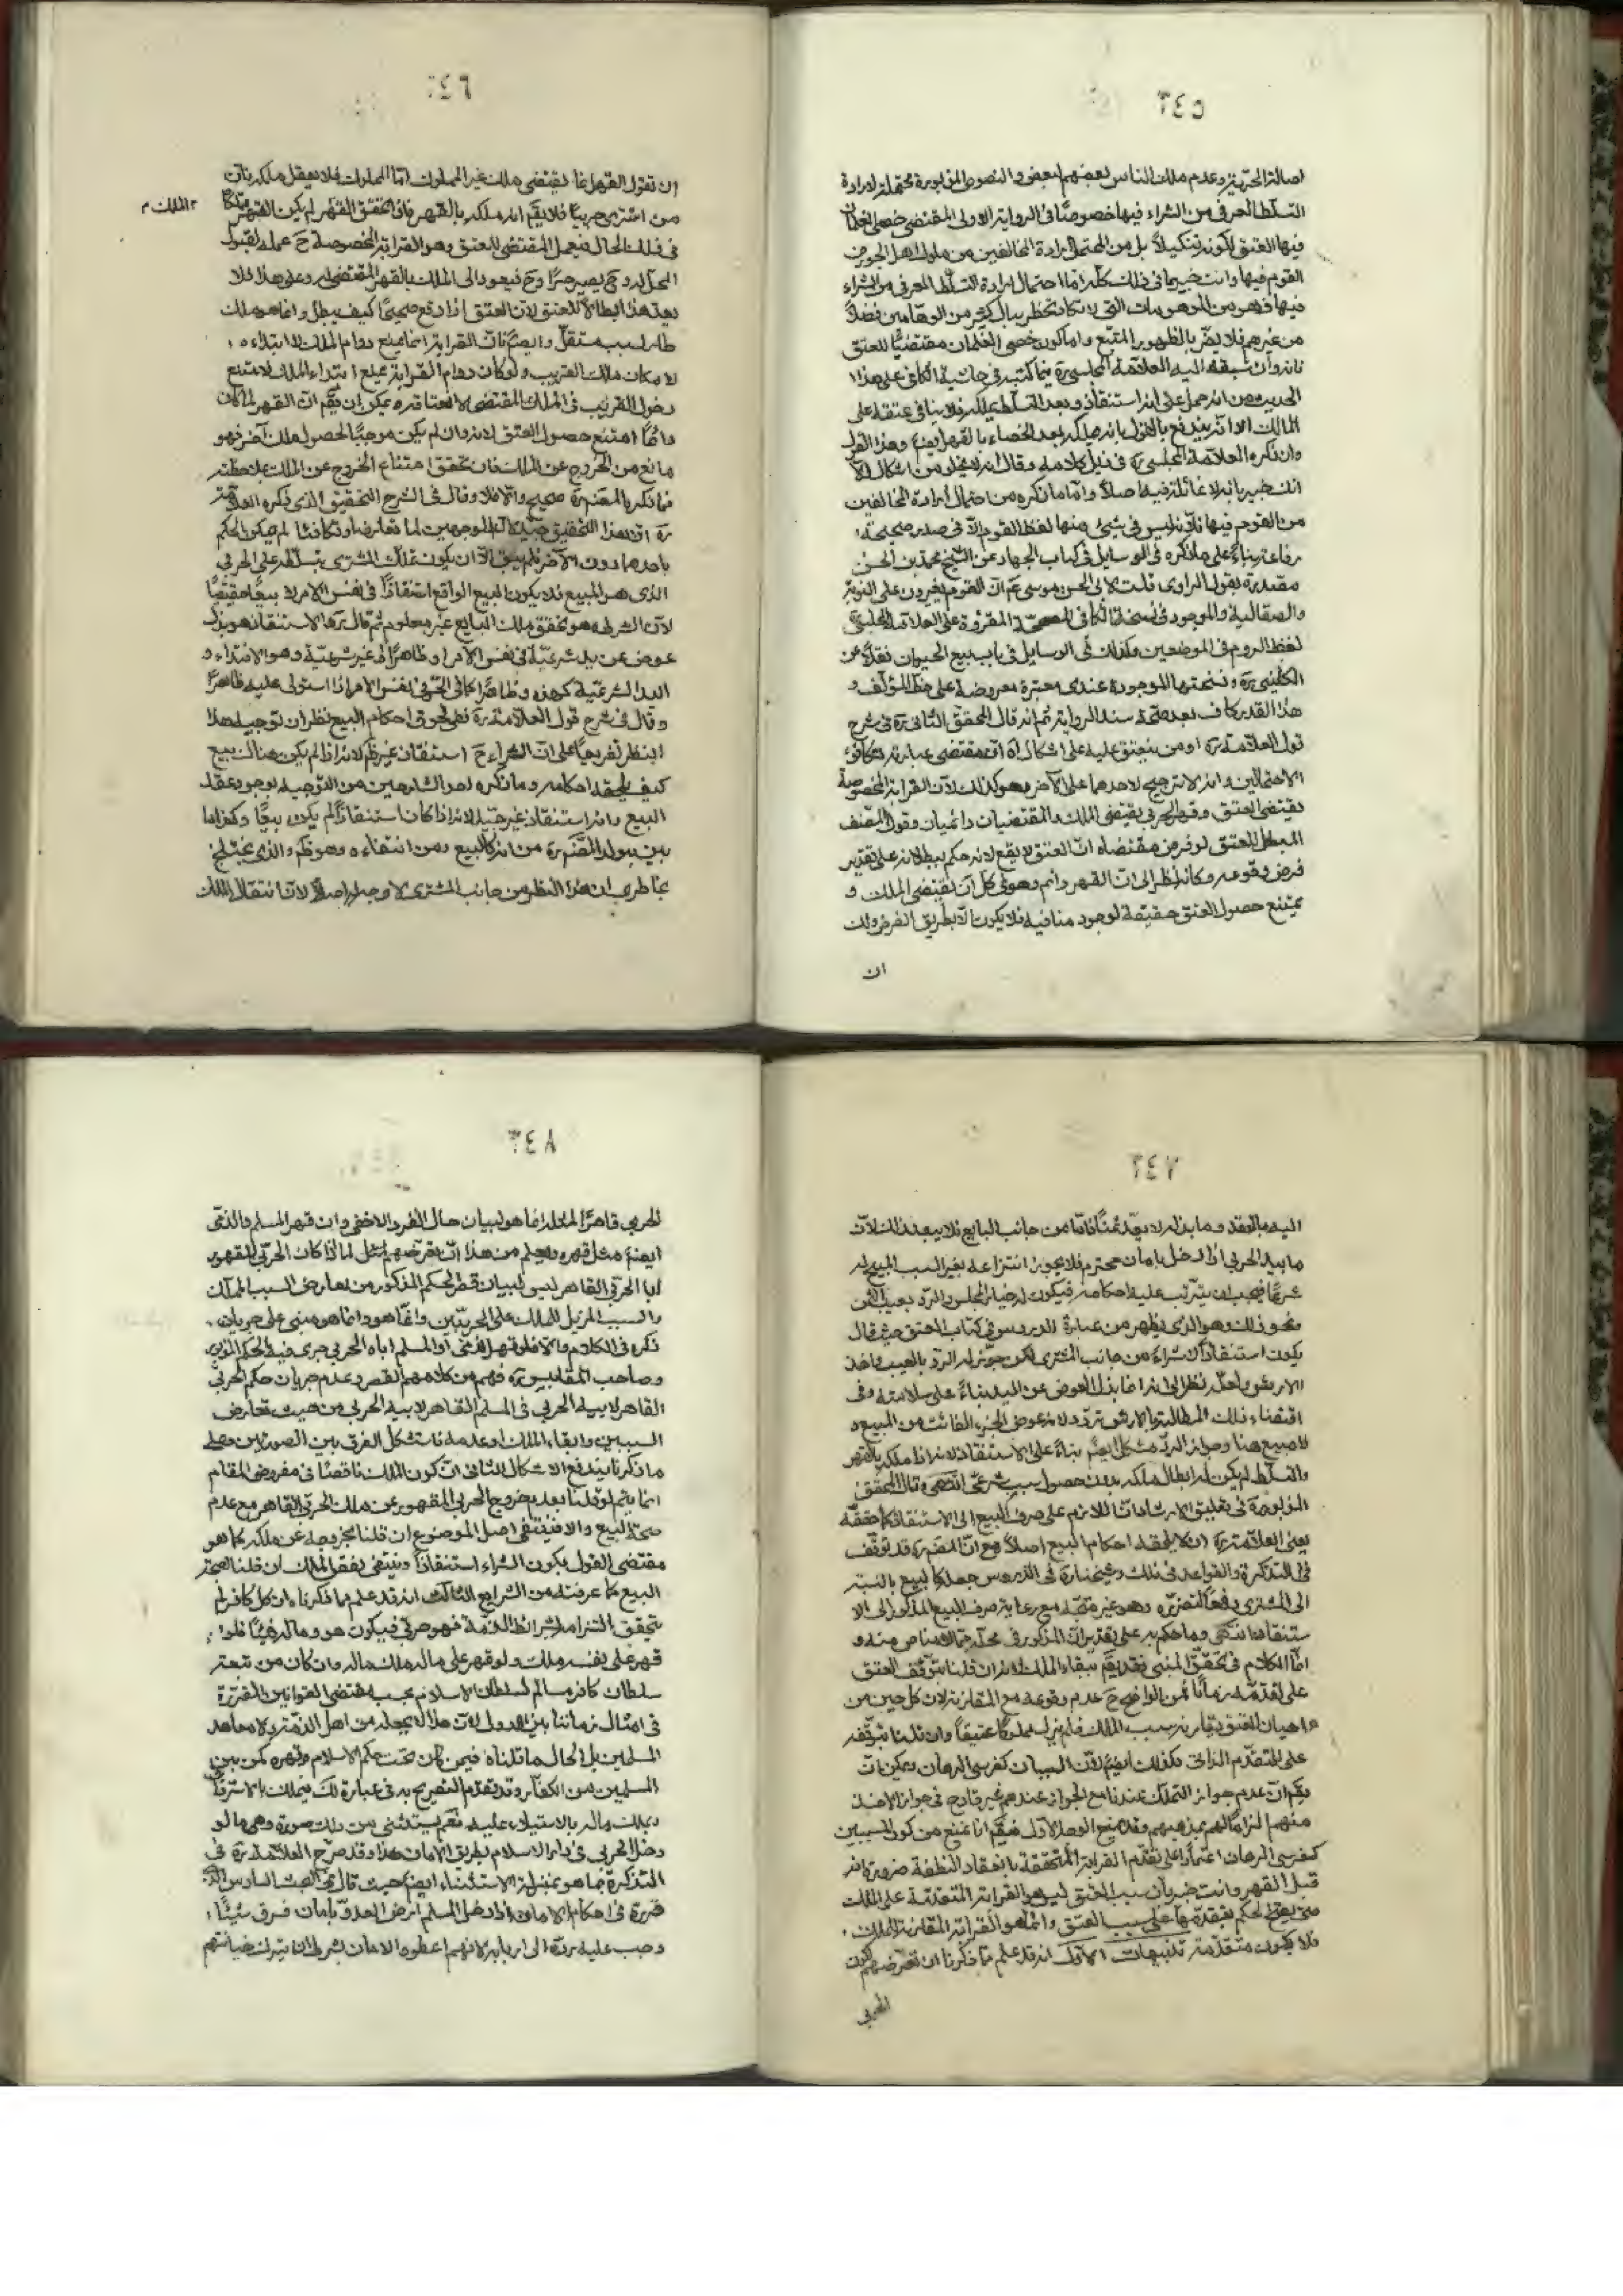 ٢٤٥
اصالة الحرية وعدم ملك الناس بعضهم لبعض والنصوص المزبورة محتملة لارادة
التسلط العرفى من الشراء فيها خصوصًا فى الرواية الاولى المقتضى خصى الغلمان
فيها العتق لكونه تنكيلاً بل من المحتمل ارادة المخالفين من ملوك اهل الجور من
القوم فيها وانت خبير بما فى ذلك كله اما احتمال ارادة التسلط العرفى من الشراء
فيها فهو من الموهومات التى لا تكاد تخطر ببال كثير من الوهامين فضلاً
من غيرهم فلا يضر بالظهور المتبع واما كون خصى الغلمان مقتضيًا للعتق
فانه وان سبقه اليه العلامة المجلسى ره فيما كتبه فى حاشية الكافى على هذا
الحديث من انه حمل على انه استنقاذ وبعد التسلط يملكه فلا ينافى عتقه على
المالك الا انه يندفع بالقول بانه يملكه بعد الخصاء بالقهر ايضًا وهذا القول
وان ذكره العلامة المجلسى ره فى ذيل كلامه وقال انه لا يخلو من اشكال الا
انك خبير بانه لا غائلة فيه اصلاً واما ما ذكره من احتمال ارادة المخالفين
من القوم فيها فلانه ليس فى شىء منها لفظ القوم الا فى صدر صحيحة
رفاعة بناءً على ما ذكره فى الوسايل فى كتاب الجهاد عن الشيخ محمد بن الحسن
مقيدة بقول الراوى قلت لابى الحسن موسى ع ان القوم يغيرون على النوبة
والصقالبة والموجود فى نسخة الكافى المصححة المقروة على العلامة المجلسى ره
لفظ الروم فى الموضعين وكذلك فى الوسايل فى باب بيع الحيوان نقلاً عن
الكلينى ره ونسختها الموجودة عندى معتبرة معروضة على خط المؤلف و
هذا القدر كاف بعد صحة سند الرواية ثم انه قال المحقق الثانى ره فى شرح
قول العلامة ره او من ينعتق عليه على اشكال اه ان مقتضى عبارته تكافؤ
الاحتمالين وانه لا ترجيح لاحدهما على الآخر وهو كذلك لان القرابة المخصوصة
تقتضى العتق وقهر الحربى يقتضى الملك والمقتضيان دائميان وقول المصنف
المبطل للعتق لو فرض مقتضاه ان العتق لا يقع لانه حكم ببطلانه على تقدير
فرض وقوعه وكانه نظر الى ان القهر دائم وهو فى كل آن يقتضى الملك و
يمتنع حصول العتق حقيقة لوجود منافيه فلا يكون الا بطريق الفرض ولك
ان
٢٤٦
ان تقول القهر انما يقتضى ملك غير المملوك اما المملوك فلا يعقل ملكه فان
من اشترى حربيًا فلا يقم انه ملكه بالقهر فان تحقق القهر لم يكن القهر مملكًا
٢ الملك م
فى ذلك الحال فيعمل المقتضى للعتق وهو القرابة المخصوصة ح عمله لقبول
المحل له وح يصير حرًا وح فيعود الى الملك بالقهر المقتضى له وعلى هذا فلا
يعد هذا ابطالاً للعتق لان العتق اذا وقع صحيحًا كيف يبطل وانما هو ملك
طار لسبب مستقل وايضًا فان القرابة انما تمنع دوام الملك لا ابتداءه
لامكان ملك القريب ولو كان دوام القرابة يمنع ابتداء الملك لامتنع
دخول القريب فى الملك المقتضى لانعتاقه ويمكن ان يقم ان القهر لما كان
دائمًا امتنع حصول العتق لانه وان لم يكن موجبًا لحصول ملك آخر فهو
مانع من الخروج عن الملك فان تحقق امتناع الخروج عن الملك بملاحظته
فما ذكره المصنف ره صحيح والا فلا وقال فى الشرح التحقيق الذى ذكره العلامة
ره ان هذا التحقيق جيد لان الموجبين لما تعارضا وتكافئا لم يمكن الحكم
باحدهما دون الآخر فلم يبق الا ان يكون تملك المشترى بتسلطه على الحربى
الذى هو المبيع فلا يكون البيع الواقع استنقاذًا فى نفس الامر لا بيعًا حقيقيًا
لان الشرط وهو تحقق ملك البايع غير معلوم ثم قال ره الاستنقاذ هو بذل
عوض عن يد شرعية فى نفس الامر او ظاهرًا لا غير شرعية وهو الافتداء و
اليد الشرعية كهذه وظاهرًا كما فى الحربى نفس الامر اذا استولى عليه ظاهرًا
وقال فى شرح قول العلامة ره ففى لحوق احكام البيع نظر ان توجيه هذا
النظر تفريعيًا على ان الشراء ح استنقاذ غير ظم لانه اذا لم يكن هناك بيع
كيف يلحقه احكامه وما ذكره احد الشارحين من التوجيه بوجود عقد
البيع وانه استنقاذ غير جيد لانه اذا كان استنقاذًا لم يكن بيعًا وكذا ما
بين به ولد المصنف ره من انه كالبيع ومن انتفاءه وهو ظم والذى يختلج
بخاطرى ان هذا النظر من جانب المشترى لا وجه له اصلاً لان انتقال الملك
٢٤٧
اليه بالعقد وما بذله لا يعد ثمنًا فاما من جانب البايع فلا يبعد ذلك لان
ما بيد الحربى اذا دخل بامان محترم فلا يجوز انتزاعه بغير السبب المبيح له
شرعًا فيجب ان يترتب عليه احكامه فيكون له خيار المجلس والرد بعيب الثمن
ونحو ذلك وهو الذى يظهر من عبارة الدروس فى كتاب العتق حيث قال
يكون استنقاذًا لا شراءً من جانب المشترى لكن جوز له الرد بالعيب واخذ
الارش ولعله نظر الى انه انما بذل العوض عن اليد بناءً على سلامته وفى
اقتضاء ذلك المطالبة بالارش تردد لانه عوض الجزء الفائت من المبيع و
لا مبيع هنا وجواز الرد مشكل ايضًا بناءً على الاستنقاذ لانه اذا ملكه بالقهر
والتسلط لم يكن له ابطال ملكه بدون حصول سبب شرعى انتهى وقال المحقق
المزبور ره فى تعليق الارشاد ان اللازم على صرف البيع الى الاستنقاذ كما حققه
يعنى العلامة ره ان لا يلحقه احكام البيع اصلاً مع ان المصنف ره قد توقف
فى التذكرة والقواعد فى ذلك وشيخنا ره فى الدروس جعله كالبيع بالنسبة
الى المشترى دفعًا لتضرره وهو غير متجه مع رعاية صرف البيع المذكور الى الا
ستنقاذ انتهى وما حكم به على تقدير ان المذكور فى محله مما لا مناص منه و
اما الكلام فى تحقق المبنى فقد يقم ببقاء الملك لانه ان قلنا بتوقف العتق
على تقدمه زمانًا فمن الواضح ح عدم وقوعه مع المقارنة لان كل حين من
احيان العتق يقارنه سبب الملك فلم يزل مملوكًا عتيقًا وان قلنا بتوقفه
على التقدم الذاتى فكذلك ايضًا لان السببان كفرسى الرهان ويمكن ان
يقم ان عدم جواز التملك عندنا مع الجواز عندهم غير قادح فى جواز الاخذ
منهم الزامًا لهم بمذهبهم وقد يمنع الوجه الاول فيقم انا نمنع من كون السببين
كفرسى الرهان اعتمادًا على تقدم القرابة المتحققة بانعقاد النطفة ضرورة انه
قبل القهر وانت خبير بان سبب العتق ليس هو القرابة المتقدمة على الملك
حتى يصح الحكم بتقدمها على سبب العتق وانما هو القرابة المقارنة للملك
فلا يكون متقدمة تنبيهات الاول انه قد علم مما ذكرنا ان تعرضهم لكون
الحربى
٢٤٨
الحربى قاهرًا لمثله انما هو لبيان حال الفرد الاخفى وان قهر المسلم والذمى
ايضًا مثل قهره ويعلم من هذا ان تعرضهم لمثل ما اذا كان الحربى المقهور
ابا الحربى القاهر ليس لبيان قصر الحكم المذكور من تعارض السبب المملك
والسبب المزيل للملك على الحربيين وانما هو انما هو مبنى على جريان
ذكره فى الكلام والا فلو قهر الذمى او المسلم اباه الحربى جرى فيه الحكم المزبور
وصاحب المقابيس ره فهم من كلامهم القصر وعدم جريان حكم الحربى
القاهر لابيه الحربى فى المسلم القاهر لابيه الحربى من حيث تعارض
السببين وابقاء الملك وعدمه فاستشكل الفرق بين الصورتين وعلى
ما ذكرنا يندفع الاشكال الثانى ان كون الملك ناقصًا فى مفروض المقام
انما يتم لو قلنا بعد بخروج الحربى المقهور عن ملك الحربى القاهر مع عدم
صحة البيع والا فينتفى اصل الموضوع ان قلنا بخروجه عن ملكه كما هو
مقتضى القول بكون الشراء استنقاذًا وينتفى نقص الملك ان قلنا بصحة
البيع كما عرفته من الشرايع الثالث انه قد علم مما ذكرنا ان كل كافر لم
يتحقق التزامه بشرائط الذمة فهو حربى فيكون هو وماله فيئًا فلو
قهر على نفسه ملك ولو قهر على ماله ملك ماله وان كان من تبعة
سلطان كافر مسالم لسلطان الاسلام بحسب مقتضى القوانين المقررة
فى امثال زماننا بين الدول لان هذا لا يجعله من اهل الذمة ولا معاهد
المسلمين بل الحال ما قلناه فيمن كان تحت حكم الاسلام وقهره كمن بين
المسلمين من الكفار وقد تقدم التصريح به فى عبارة لك فيملك بالاسترقاق
ويملك ماله بالاستيلاء عليه نعم يستثنى من ذلك صورة وهى ما لو
دخل الحربى فى دار الاسلام بطريق الامان هذا وقد صرح العلامة ره فى
التذكرة بما هو بمنزلة الاستثناء ايضًا حيث قال فى البحث السادس الذى
قرره فى احكام الامان اذا دخل المسلم ارض العدو بامان فسرق شيئًا
وجب عليه رده الى اربابه لانهم اعطوه الامان بشرط ان يترك خيانتهم